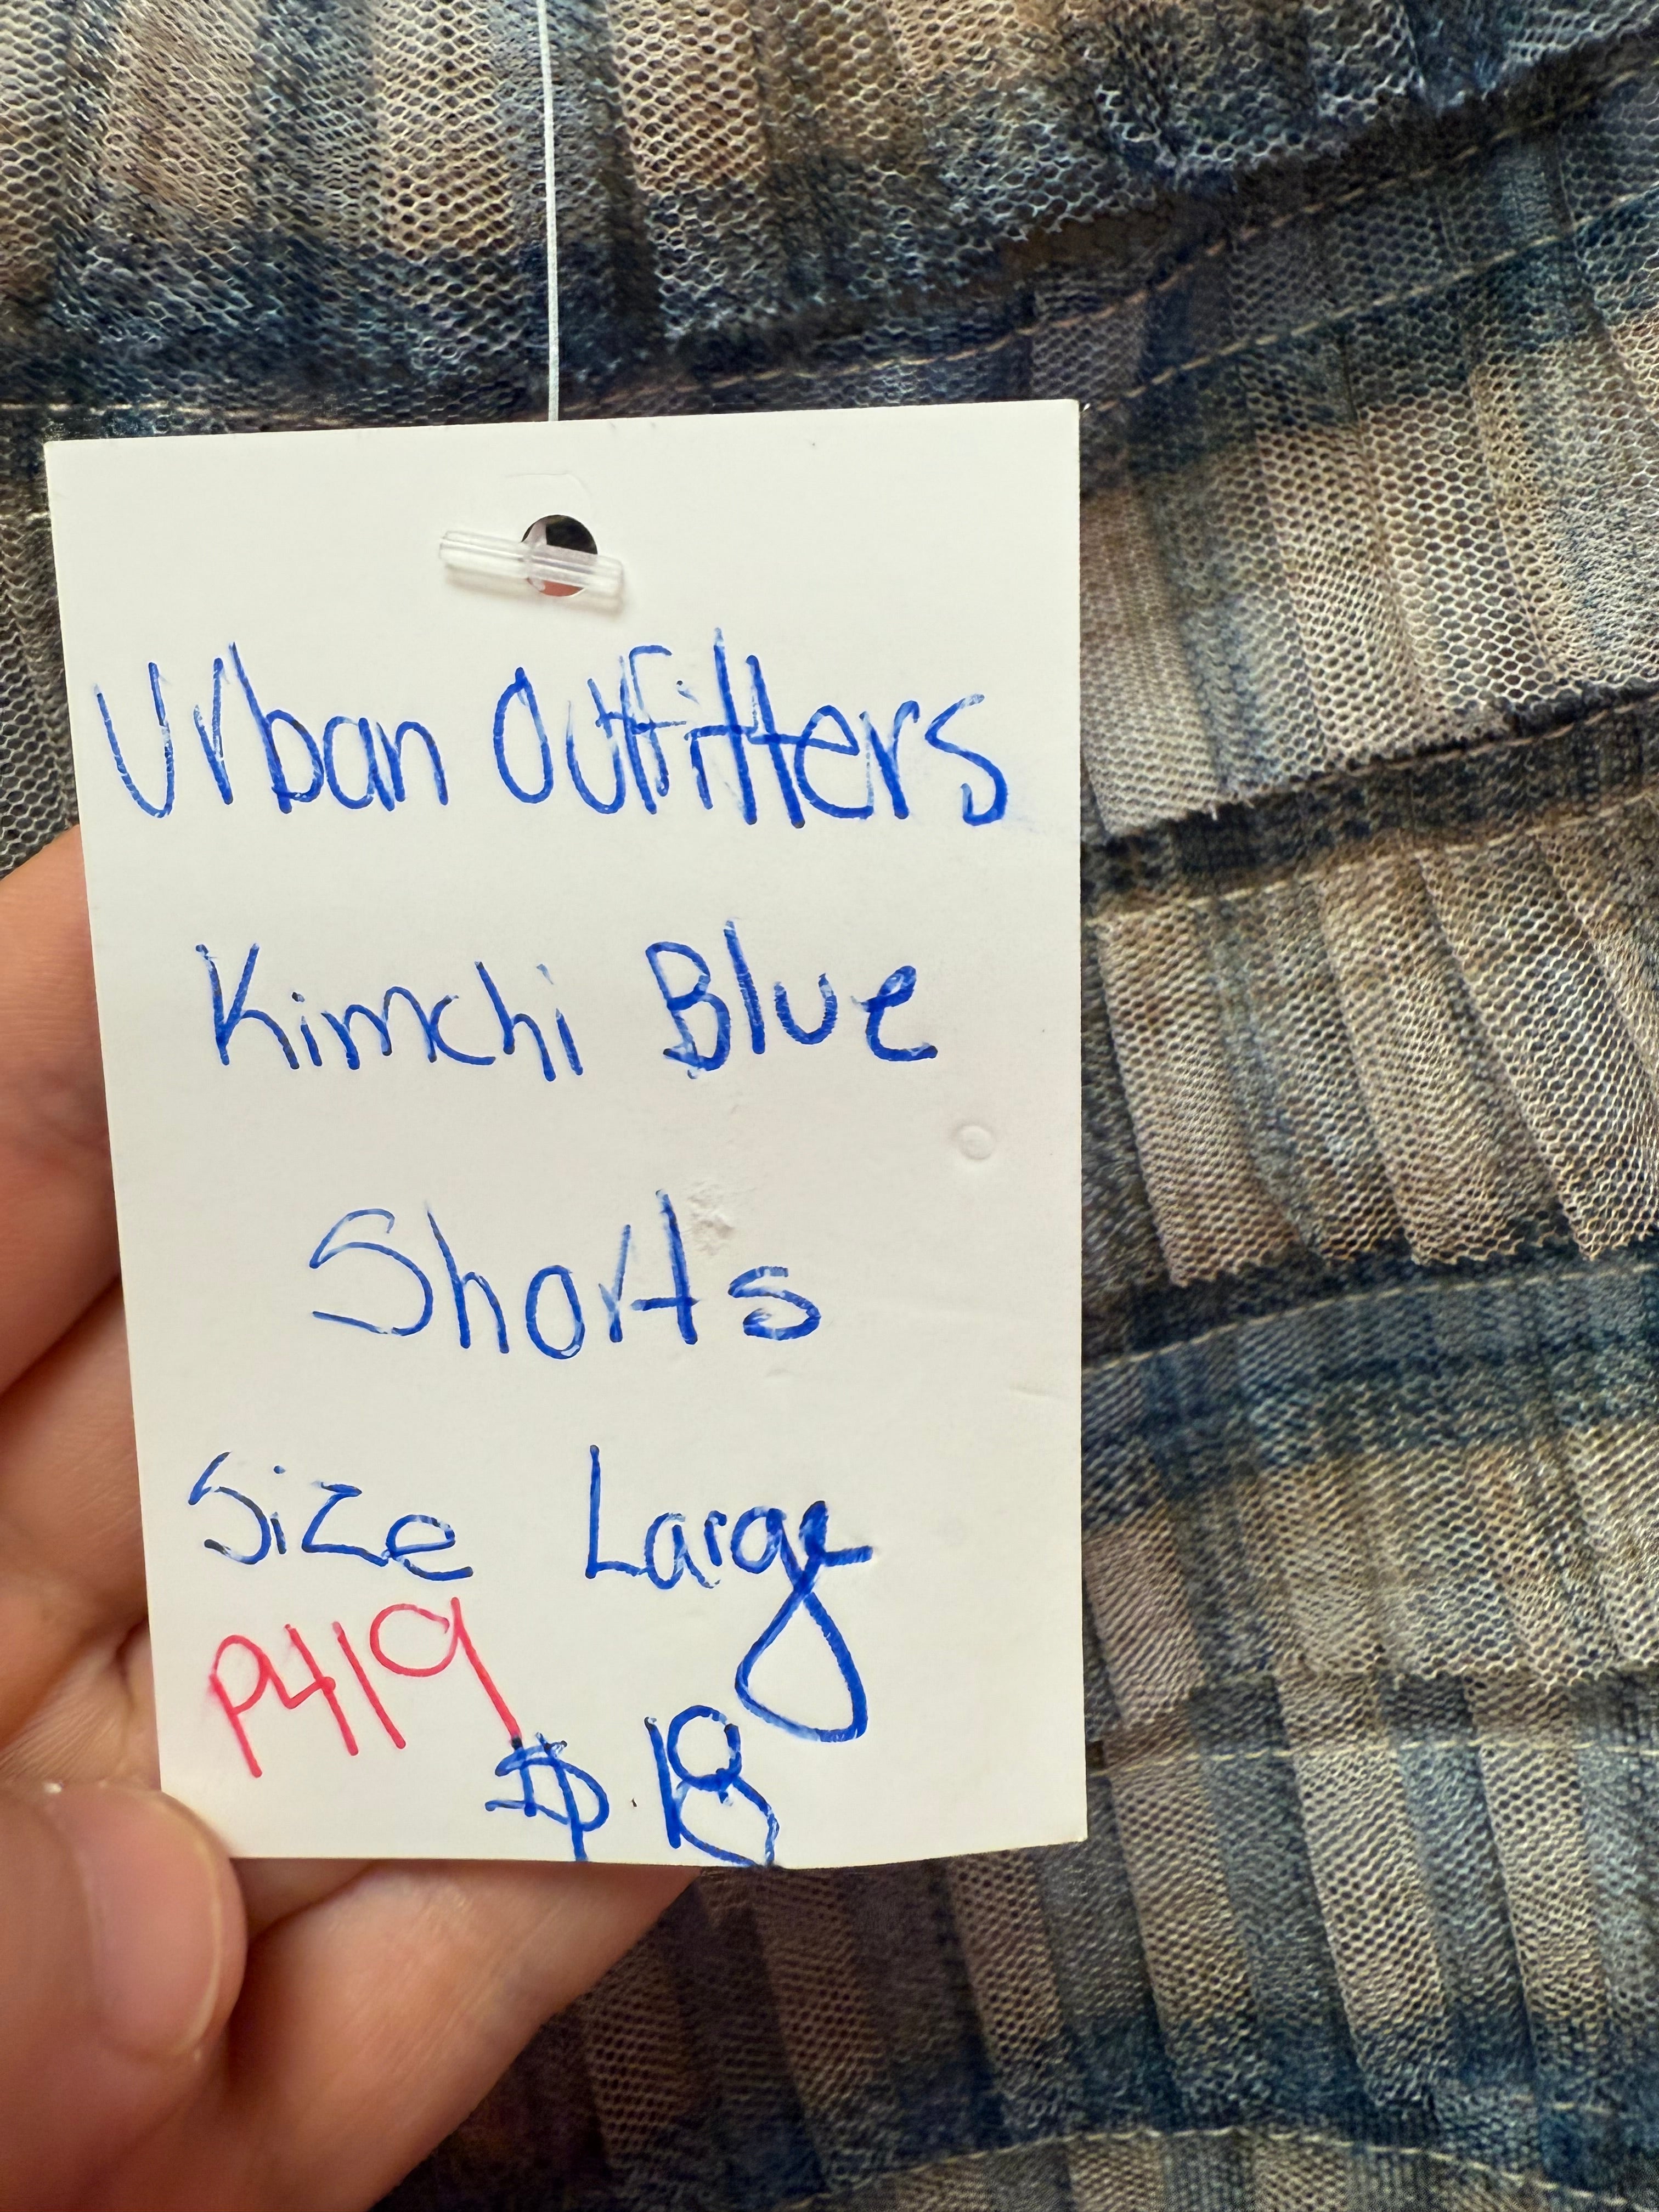 Urban Outfitters
Kimchi Blue
Shorts
Size Large
P419
$ 18